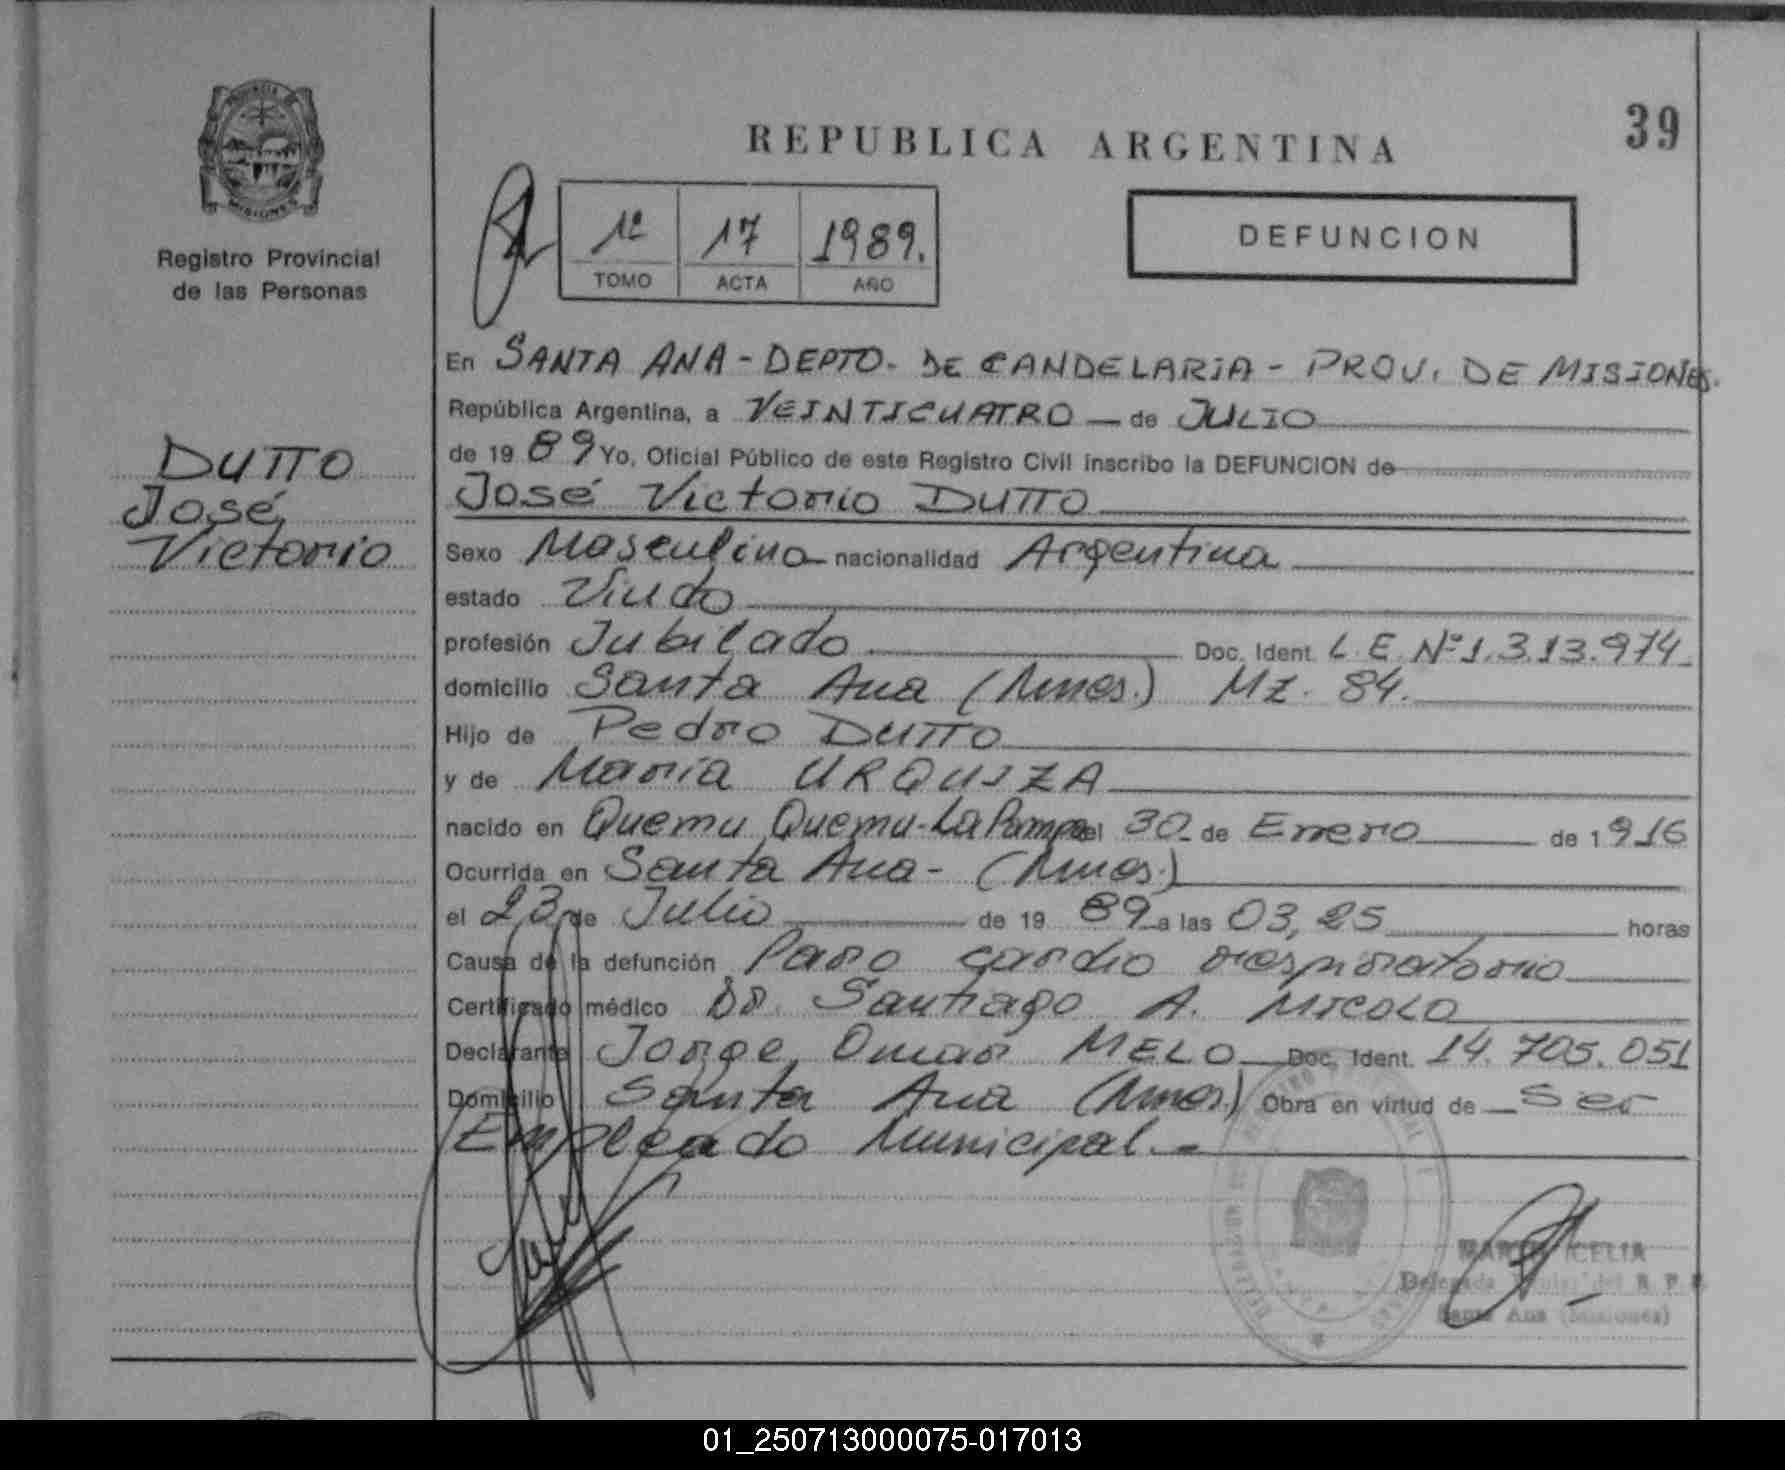 PROVINCIA DE
MISIONES
Registro Provincial
de las Personas
DUTTO
José
Victorio
REPUBLICA ARGENTINA
39
1º 17 1989.
TOMO ACTA AÑO
DEFUNCION
En SANTA ANA - DEPTO. DE CANDELARIA - PROV. DE MISIONES.
República Argentina, a VEINTICUATRO — de JULIO
de 1989 Yo, Oficial Público de este Registro Civil inscribo la DEFUNCION de
José Victorio DUTTO
Sexo Masculino nacionalidad Argentina
estado Viudo
profesión Jubilado Doc. Ident. L.E. Nº 1.313.974
domicilio Santa Ana (Mnes.) Mz. 84.
Hijo de Pedro DUTTO
y de María URQUIZA
nacido en Quemu Quemu-La Pampa el 30 de Enero de 1916
Ocurrida en Santa Ana - (Mnes.)
el 23 de Julio de 1989 a las 03,25 horas
Causa de la defunción Paro cardio respiratorio
Certificado médico Dr. Santiago A. MICOLO
Declarante Jorge Omar MELO Doc. Ident. 14.705.051
Domicilio Santa Ana (Mnes.) Obra en virtud de — Ser
Empleado Municipal.-
CELIA
Delegada Titular del R. P.
Santa Ana (Misiones)
01_250713000075-017013